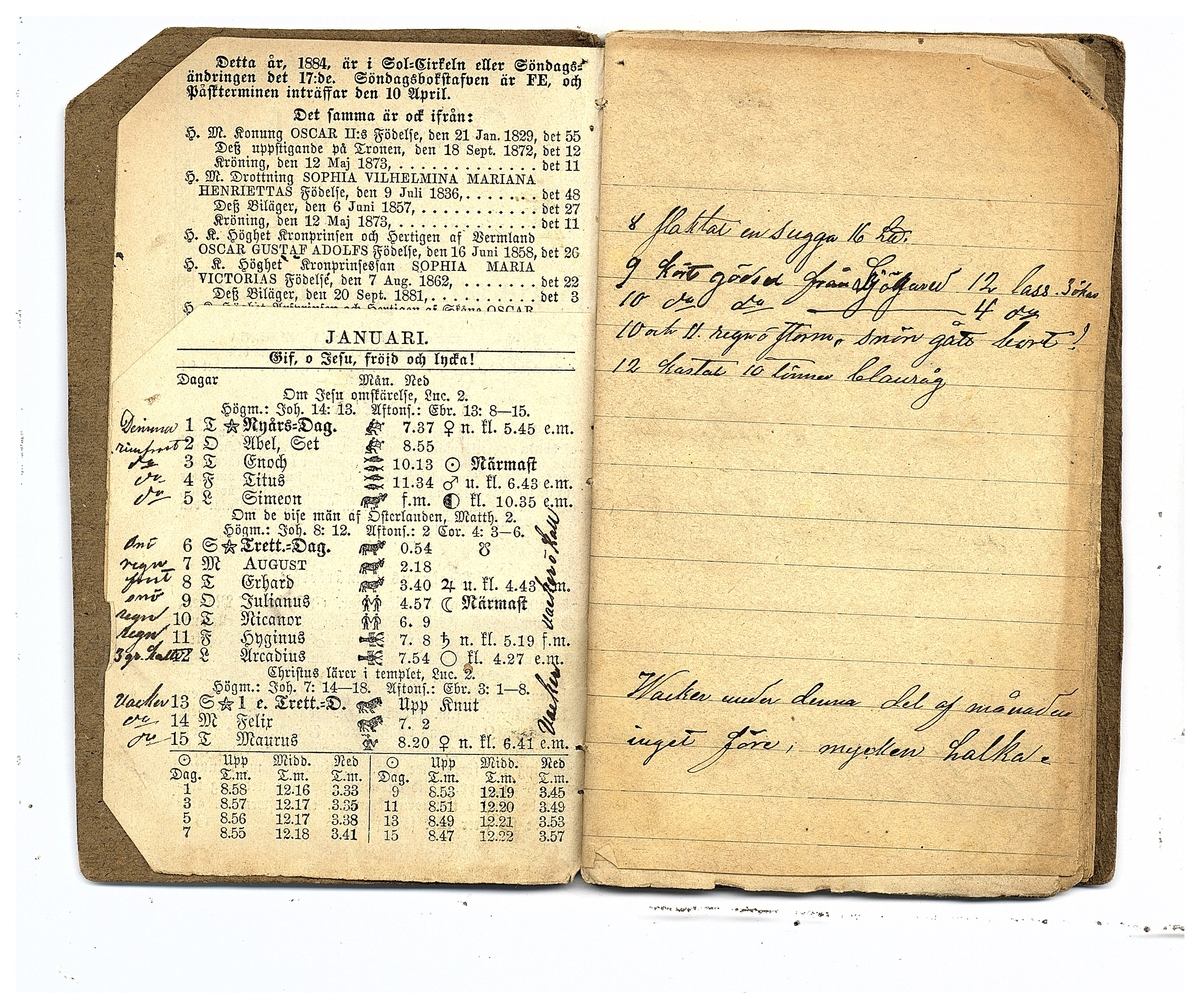 Detta år, 1884, är i Sol-Cirkeln eller Söndags-
ändringen det 17:de. Söndagsbokstafven är FE, och
Påskterminen inträffar den 10 April.
Det samma är ock ifrån:
H. M. Konung OSCAR II:s Födelse, den 21 Jan. 1829, det 55
Deß uppstigande på Tronen, den 18 Sept. 1872, det 12
Kröning, den 12 Maj 1873, . . . . . . . . . . . . det 11
H. M. Drottning SOPHIA VILHELMINA MARIANA
HENRIETTAS Födelse, den 9 Juli 1836, . . . . . . . det 48
Deß Biläger, den 6 Juni 1857, . . . . . . . . . . det 27
Kröning, den 12 Maj 1873, . . . . . . . . . . . . det 11
H. K. Höghet Kronprinsen och Hertigen af Vermland
OSCAR GUSTAF ADOLFS Födelse, den 16 Juni 1858, det 26
H. K. Höghet Kronprinsessan SOPHIA MARIA
VICTORIAS Födelse, den 7 Aug. 1862, . . . . . . . det 22
Deß Biläger, den 20 Sept. 1881, . . . . . . . . . det 3
JANUARI.
Gif, o Jesu, fröjd och lycka!
Dagar Mån. Ned
Om Jesu omskärelse, Luc. 2.
Högm.: Joh. 14: 13. Aftons.: Ebr. 13: 8—15.
Dimma 1 T ☆ Nyårs-Dag. 7.37 ♀ n. kl. 5.45 e.m.
rimfrost 2 O Abel, Set 8.55
do 3 T Enoch 10.13 ☉ Närmast
do 4 F Titus 11.34 ♂ u. kl. 6.43 e.m.
do 5 L Simeon f.m. ◐ kl. 10.35 e.m.
Om de vise män af Österlanden, Matth. 2.
Högm.: Joh. 8: 12. Aftons.: 2 Cor. 4: 3—6.
snö 6 S ☆ Trett.-Dag. 0.54 ☋
regn 7 M AUGUST 2.18
frost 8 T Erhard 3.40 ♃ u. kl. 4.43 e.m.
snö 9 O Julianus 4.57 ☾ Närmast
regn 10 T Nicanor 6. 9
regn 11 F Hyginus 7. 8 ♄ n. kl. 5.19 f.m.
3 gr. kallt 12 L Arcadius 7.54 ○ kl. 4.27 e.m.
Christus lärer i templet, Luc. 2.
Högm.: Joh. 7: 14—18. Aftons.: Ebr. 3: 1—8.
Vacker 13 S ☆ 1 e. Trett.-D. Upp Knut
do 14 M Felix 7. 2
do 15 T Maurus 8.20 ♀ n. kl. 6.41 e.m.
Vacker
☉ Upp Midd. Ned ☉ Upp Midd. Ned
Dag. T.m. T.m. T.m. Dag. T.m. T.m. T.m.
1 8.58 12.16 3.33 9 8.53 12.19 3.45
3 8.57 12.17 3.35 11 8.51 12.20 3.49
5 8.56 12.17 3.38 13 8.49 12.21 3.53
7 8.55 12.18 3.41 15 8.47 12.22 3.57
8 slaktat en sugga 16 Ld.
9 kört gödsel från 12 lass 3 ökar
10 do do 4 do
10 och 11 regn o storm, snön gått bort!
12 kastat 10 tunnor blauråg
Wacker under denna del af månaden
inget före, mycken halka.